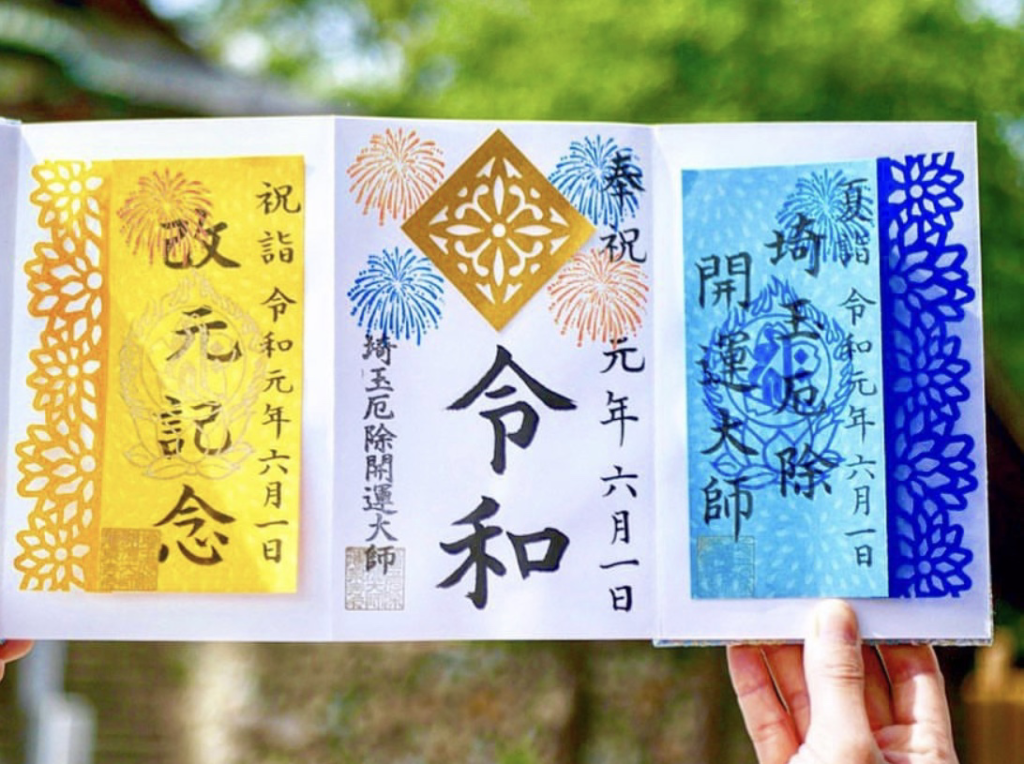 夏詣 令和元年六月一日
埼玉厄除
開運大師
奉祝 元年六月一日
令和
埼玉厄除開運大師
祝詣 令和元年六月一日
改元記念